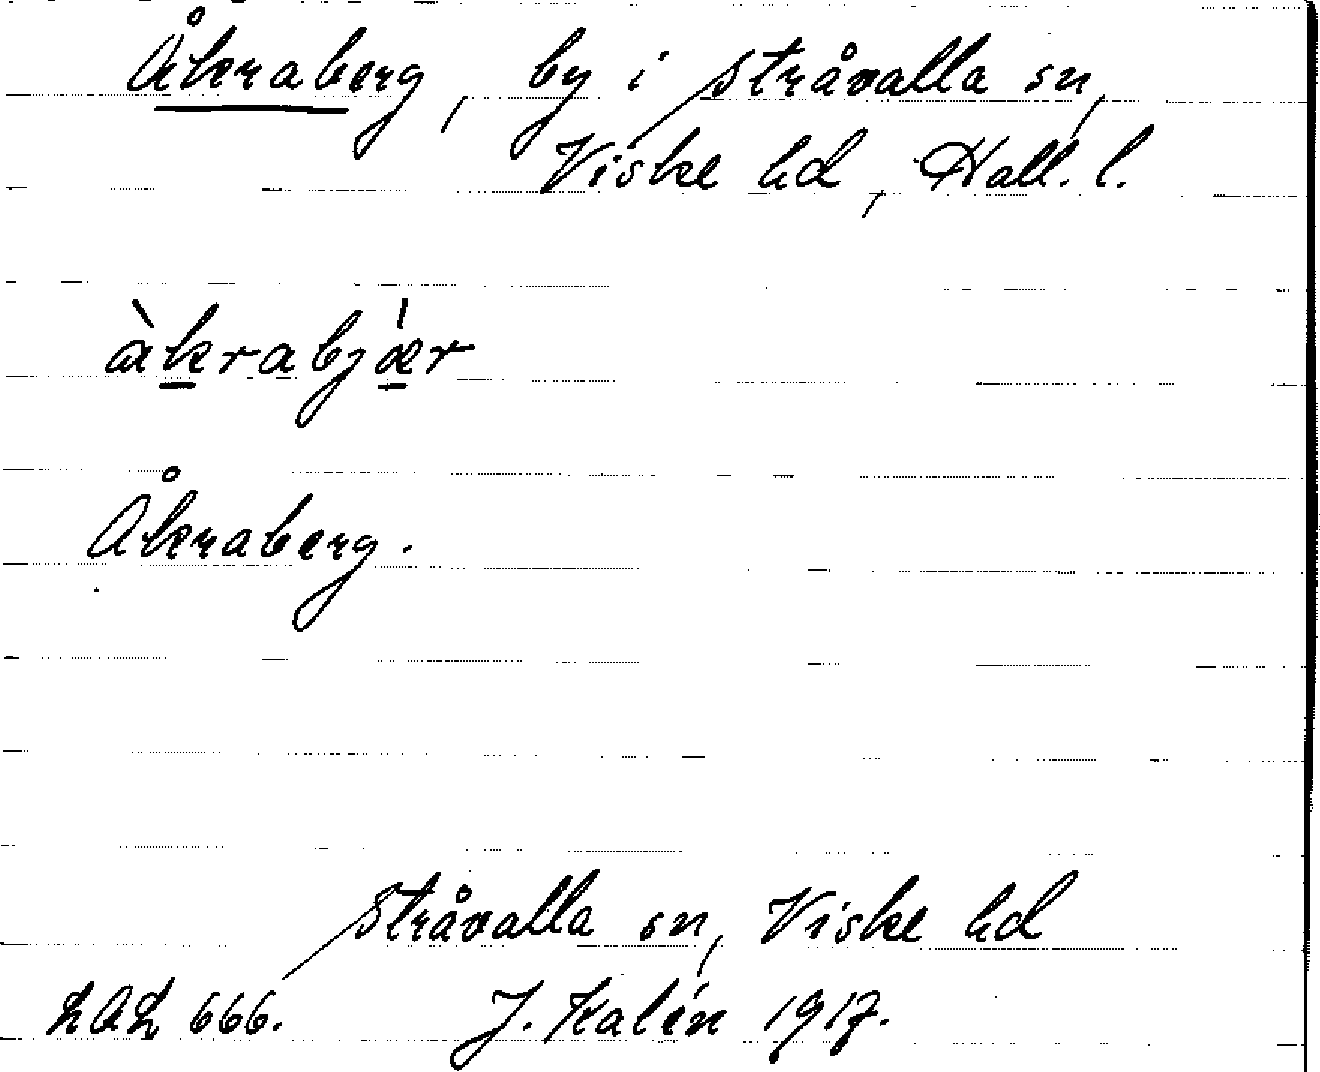 Åkraberg, by i Stråvalla sn,
Viske hd, Hall. l.
àkrabjær
Åkraberg.
Stråvalla sn, Viske hd
LAL 666. J. Kalén 1917.